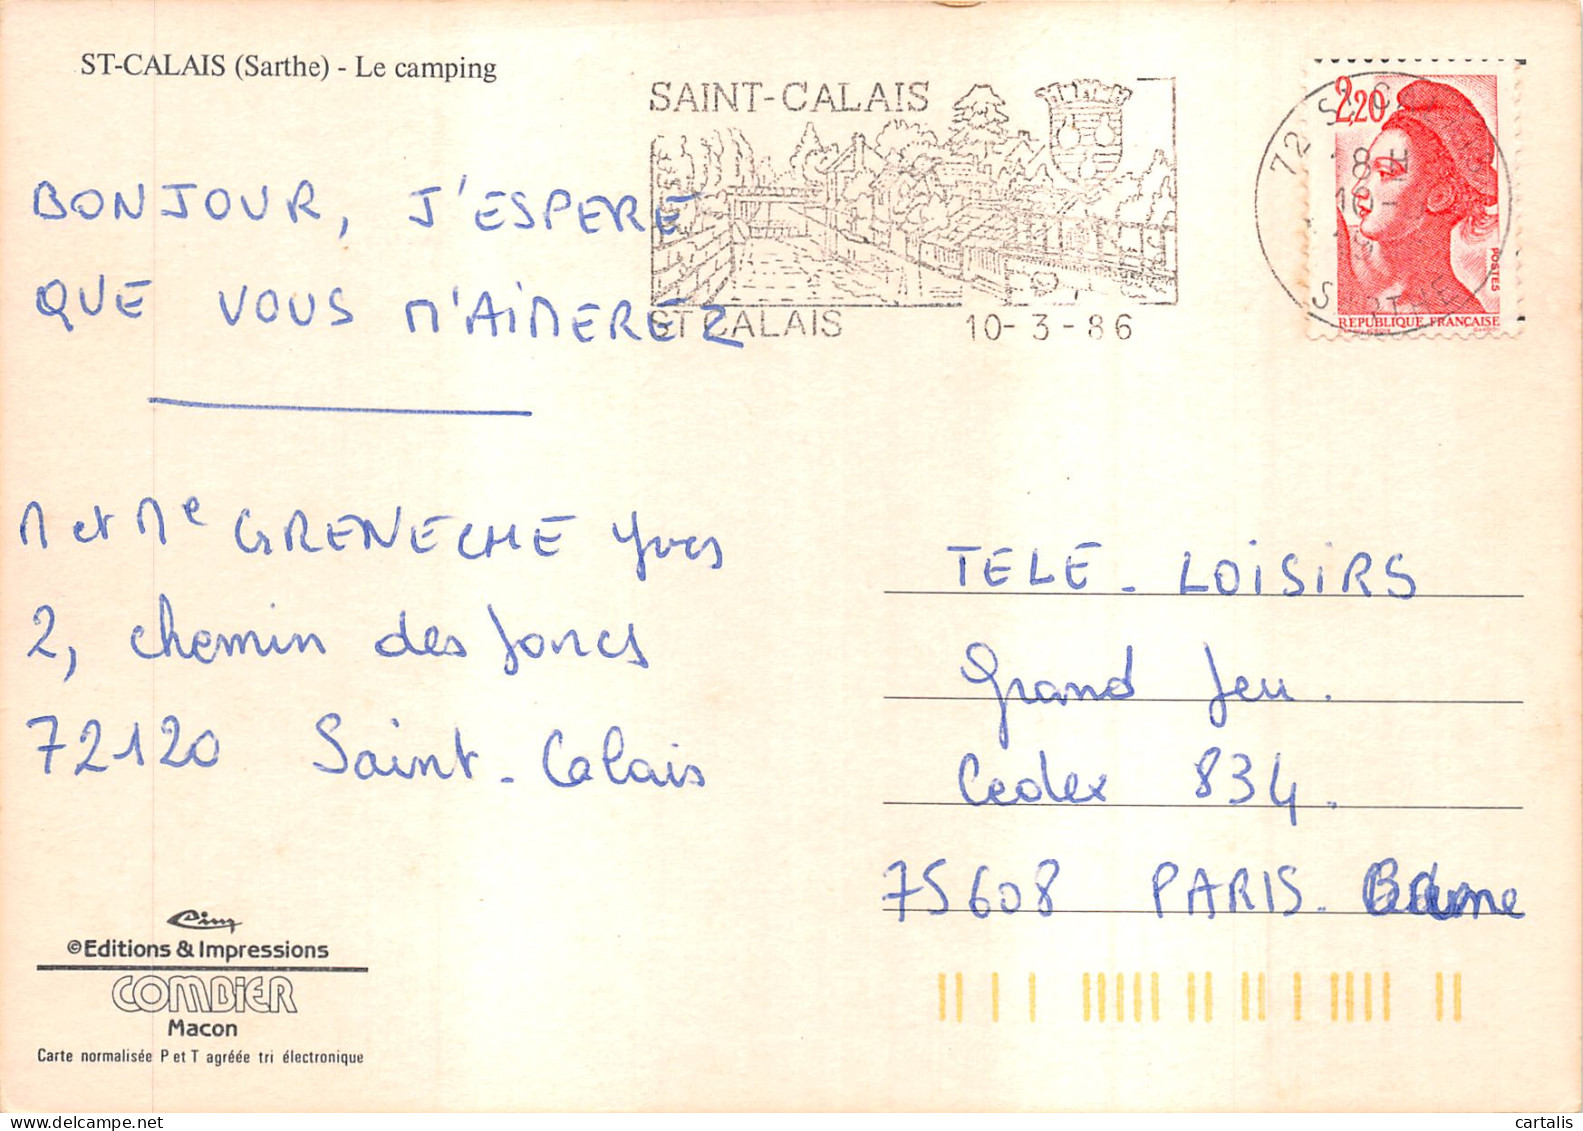 ST-CALAIS (Sarthe) - Le camping
SAINT-CALAIS
ST CALAIS 10-3-86
2,20
POSTES
REPUBLIQUE FRANCAISE
72
8 H
SARTHE
BONJOUR, J'ESPERE
QUE VOUS M'AIMEREZ
M et Me GRENECHE Yves
2, chemin des Joncs
72120 Saint-Calais
TELE-LOISIRS
Grand Jeu.
Cedex 834.
75608 PARIS.
Cim
©Editions & Impressions
COMBIER
Macon
Carte normalisée P et T agréée tri électronique
cartalis